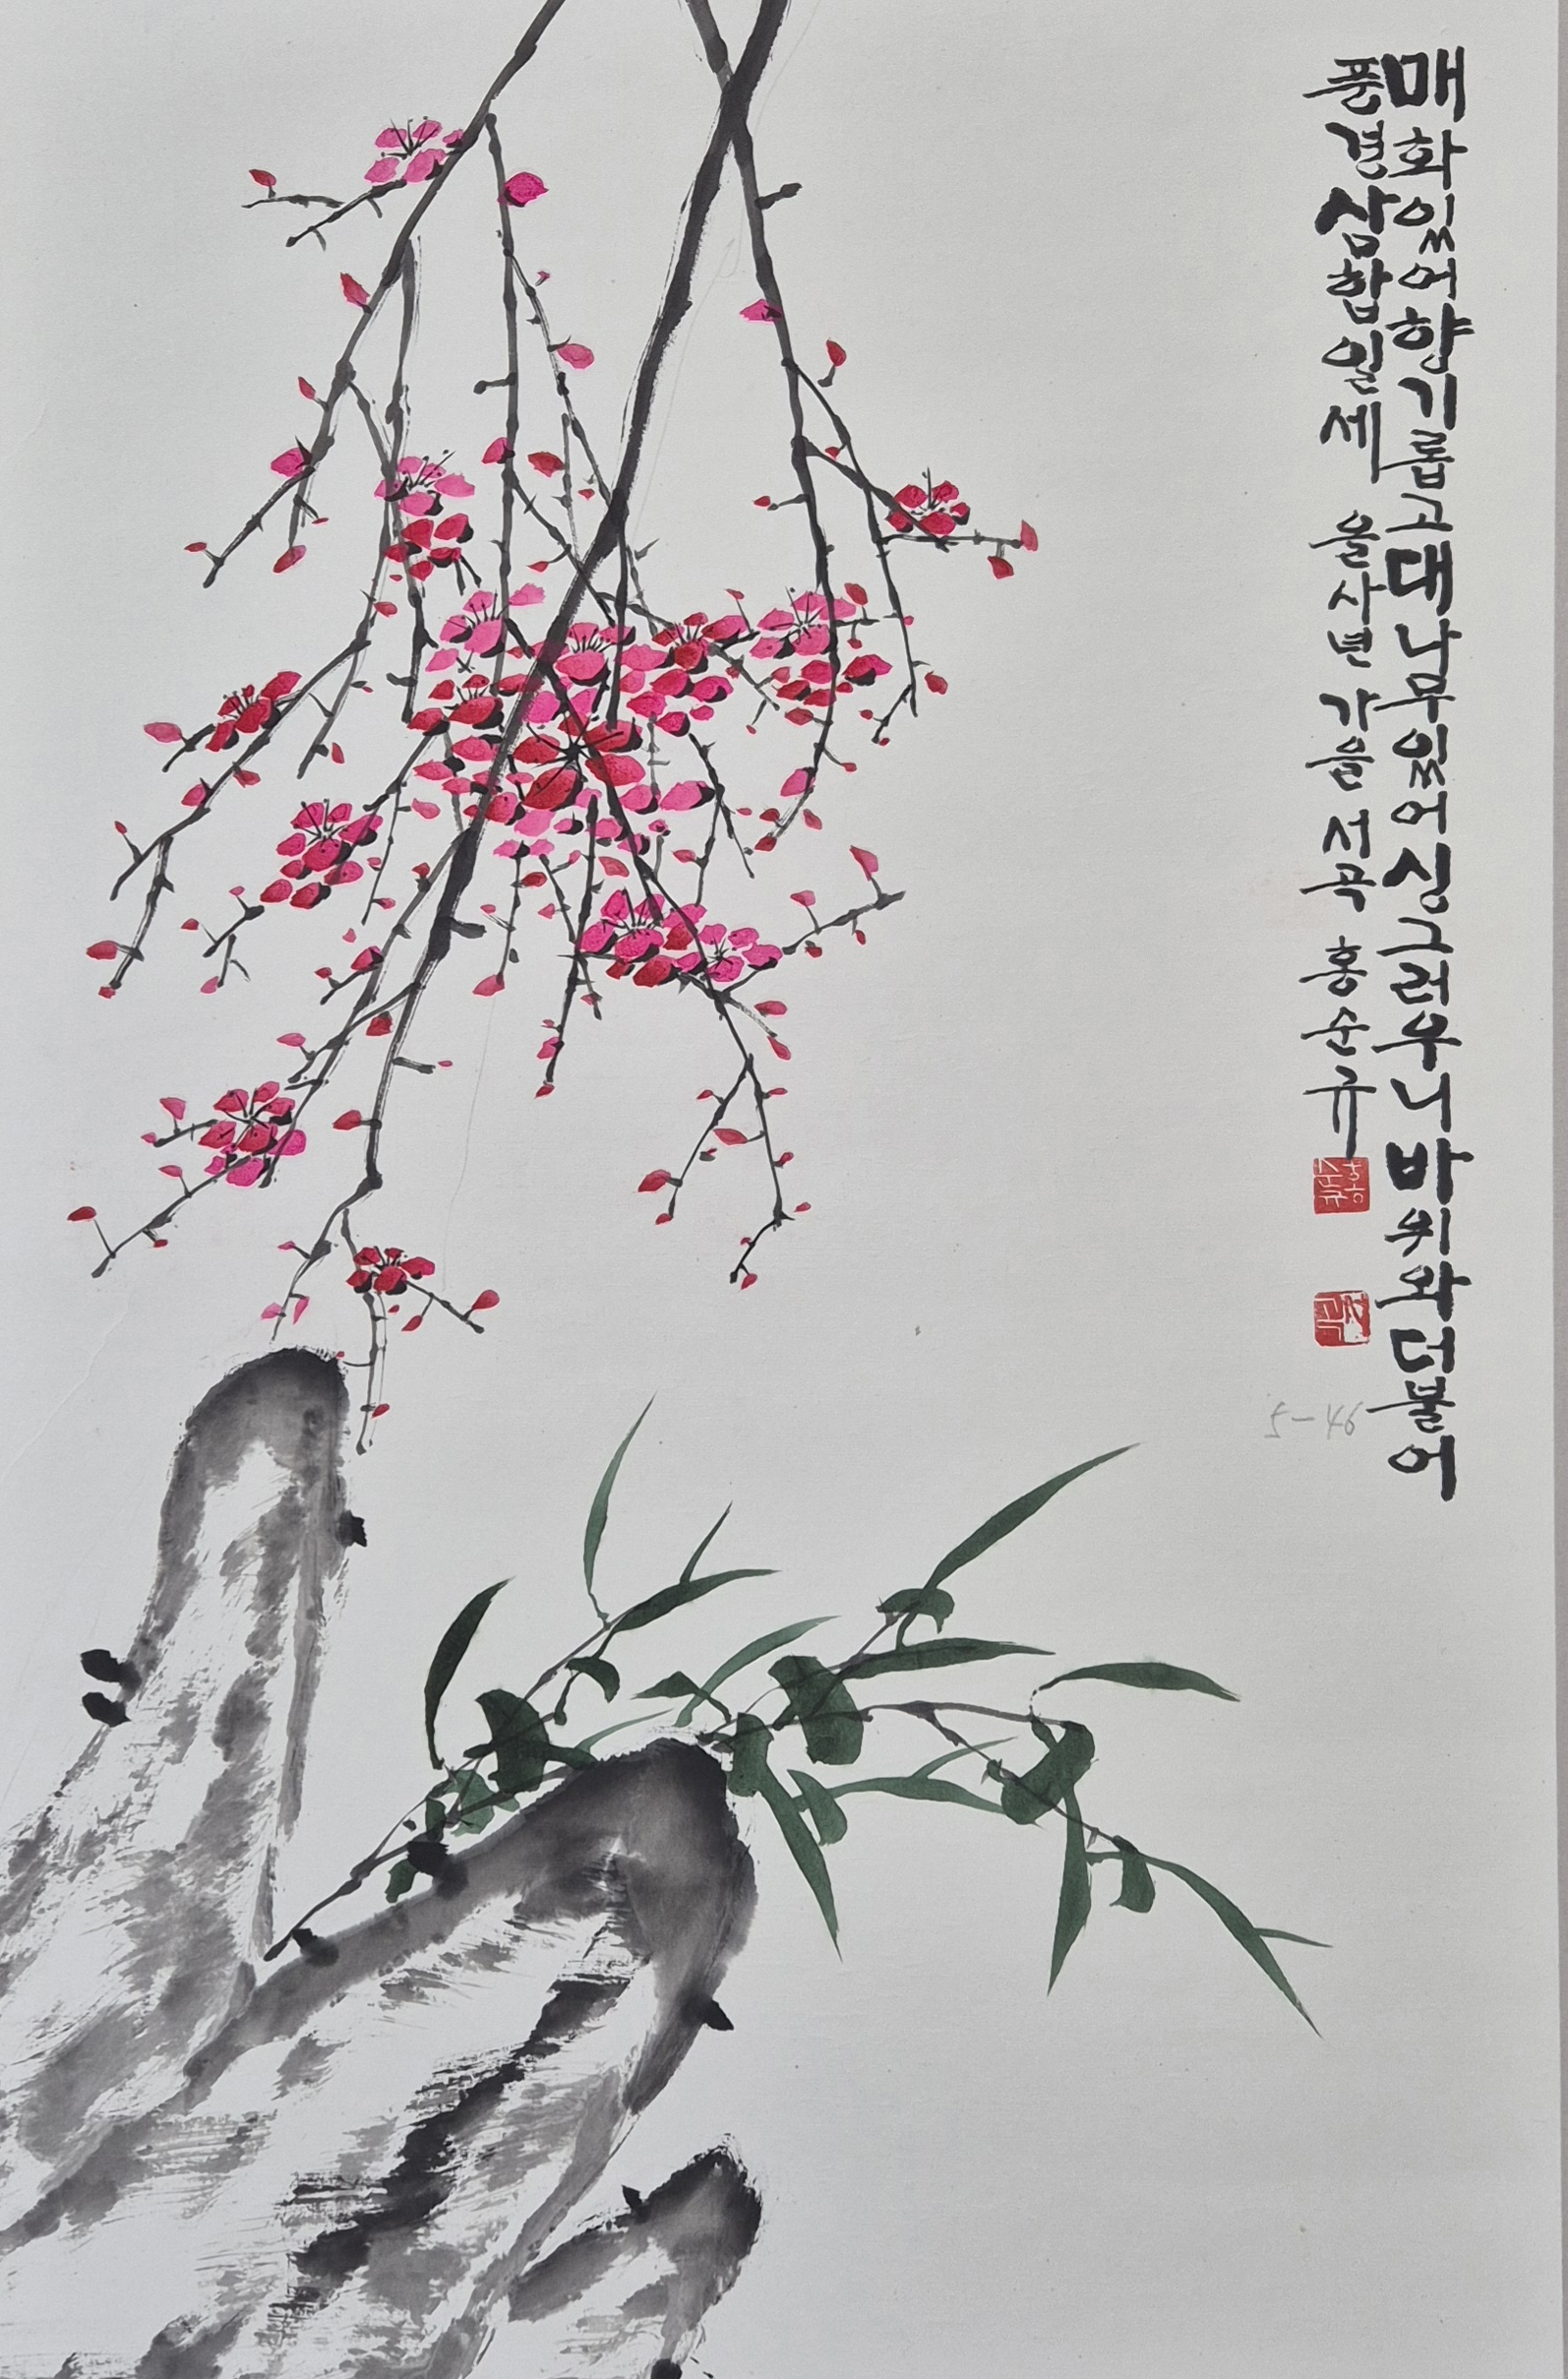 매화있어향기롭고대나무있어싱그러우니바위와더불어
삼합일세 을사년 가을 저곡 홍순규
5-46